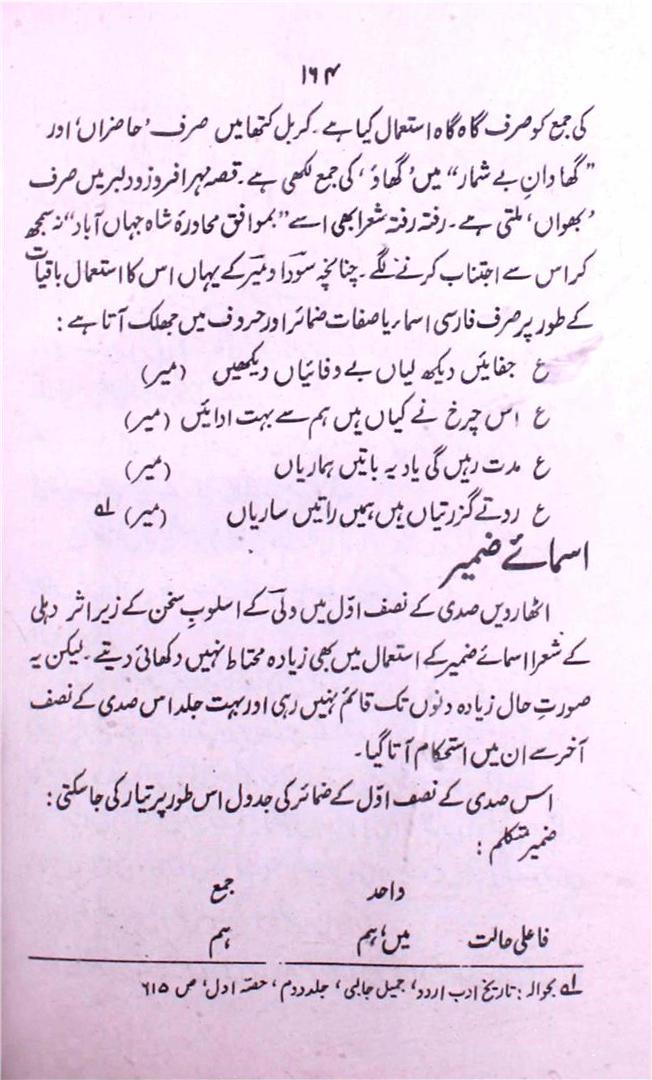 ۱۶۴
کی جمع کو صرف گاہ گاہ استعمال کیا ہے۔ کربل کتھا میں صرف ’حاضراں‘ اور
”گھاداںِ بے شمار“ میں ’گھاؤ‘ کی جمع لکھی ہے۔ قصہ مہر افروز و دلبر میں صرف
’بھواں‘ ملتی ہے۔ رفتہ رفتہ شعرا بھی اسے ”بموافق محاورۂ شاہ جہاں آباد“ نہ سمجھ
کر اس سے اجتناب کرنے لگے۔ چنانچہ سودا و میر کے یہاں اس کا استعمال باقیات
کے طور پر صرف فارسی اسماء یا صفات ضمائر اور حروف میں جھلک آتا ہے :
ع جفائیں دیکھ لیاں بے وفائیاں دیکھیں (میر)
ع اس چرخ نے کیاں ہیں ہم سے بہت ادائیں (میر)
ع مدت رہیں گی یاد یہ باتیں ہماریاں (میر)
ع روتے گزرتیاں ہیں ہمیں راتیں ساریاں (میر) لہ
اسمائے ضمیر
اٹھارویں صدی کے نصف اوّل میں ولی کے اسلوبِ سخن کے زیر اثر دہلی
کے شعرا اسمائے ضمیر کے استعمال میں بھی زیادہ محتاط نہیں دکھائی دیتے۔ لیکن یہ
صورتِ حال زیادہ دنوں تک قائم نہیں رہی اور بہت جلد اس صدی کے نصف
آخر سے ان میں استحکام آتا گیا۔
اس صدی کے نصف اوّل کے ضمائر کی جدول اس طور پر تیار کی جا سکتی :
ضمیر متکلم :
واحد جمع
فاعلی حالت میں، ہم ہم
لہ بحوالہ : تاریخ ادب اردو، جمیل جالبی، جلد دوم، حصہ اول، ص ۶۱۵